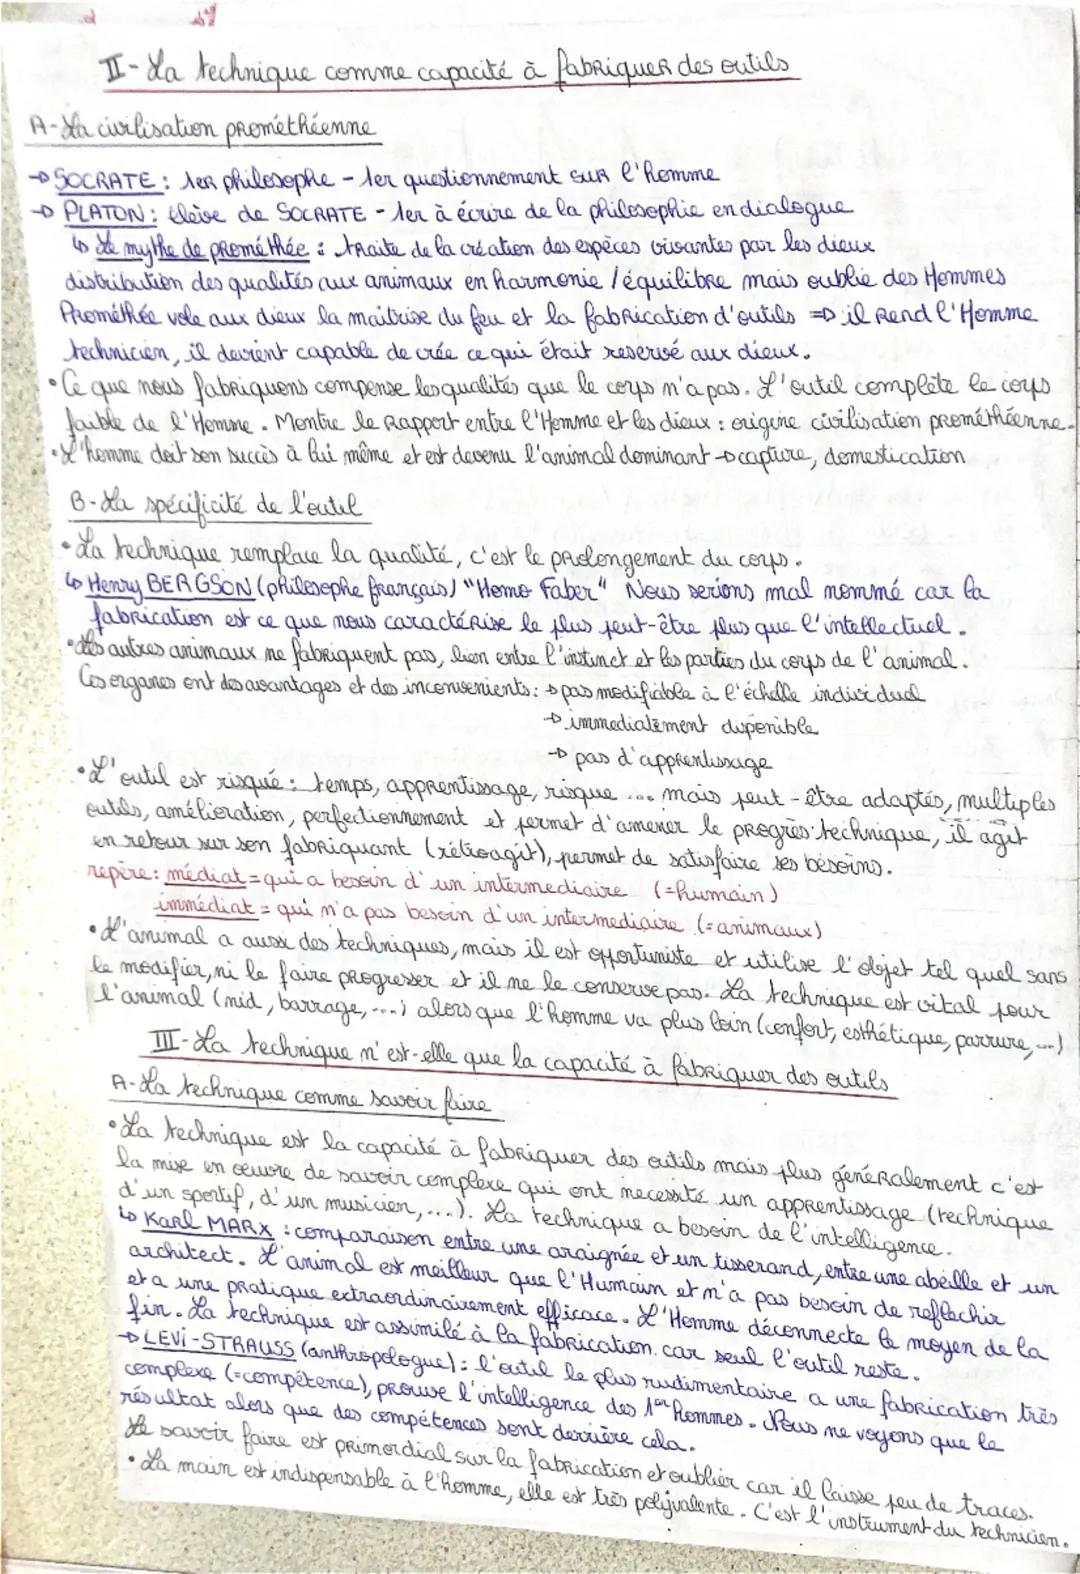 II - La technique comme capacité à fabriquer des outils
A - La civilisation prométhéenne
→ SOCRATE : 1er philosophe - 1er questionnement sur l'homme
→ PLATON : élève de SOCRATE - 1er à écrire de la philosophie en dialogue
↳ Le mythe de prométhée : traite de la création des espèces vivantes par les dieux
distribution des qualités aux animaux en harmonie / équilibre mais oublie des Hommes
Prométhée vole aux dieux la maitrise du feu et la fabrication d'outils ⇒ il rend l'Homme
technicien, il devient capable de crée ce qui était reservé aux dieux.
• Ce que nous fabriquons compense les qualités que le corps n'a pas. L'outil complète le corps
faible de l'Homme. Montre le rapport entre l'Homme et les dieux : origine civilisation prométhéenne.
• L'homme doit son succès à lui même et est devenu l'animal dominant → capture, domestication
B - La spécificité de l'outil
• La technique remplace la qualité, c'est le prolongement du corps.
↳ Henry BERGSON (philosophe français) "Homo Faber" Nous serions mal nommé car la
fabrication est ce que nous caractérise le plus peut-être plus que l'intellectuel.
• Les autres animaux ne fabriquent pas, lien entre l'instinct et les parties du corps de l'animal.
Ces organes ont des avantages et des inconvenients : → pas modifiable à l'échelle individuel
→ immediatement disponible
→ pas d'apprentissage
• L'outil est risqué : temps, apprentissage, risque ... mais peut-être adaptés, multiples
outils, amélioration, perfectionnement et permet d'amener le progrès technique, il agit
en retour sur son fabriquant (rétroagit), permet de satisfaire ses besoins.
repère : médiat = qui a besoin d'un intermediaire (= humain)
immédiat = qui n'a pas besoin d'un intermediaire (= animaux)
• L'animal a aussi des techniques, mais il est opportuniste et utilise l'objet tel quel sans
le modifier, ni le faire progresser et il ne le conserve pas. La technique est vital pour
l'animal (nid, barrage, ...) alors que l'homme va plus loin (confort, esthétique, parrure, ...)
III - La technique n'est-elle que la capacité à fabriquer des outils
A - La technique comme savoir faire
• La technique est la capacité à fabriquer des outils mais plus généralement c'est
la mise en oeuvre de savoir complexe qui ont necessité un apprentissage (technique
d'un sportif, d'un musicien, ...). La technique a besoin de l'intelligence.
↳ Karl MARX : comparaison entre une araignée et un tisserand, entre une abeille et un
architect. L'animal est meilleur que l'Humain et n'a pas besoin de reflechir
et a une pratique extraordinairement efficace. L'Homme déconnecte le moyen de la
fin. La technique est assimilé à la fabrication car seul l'outil reste.
→ LEVI-STRAUSS (anthropologue) : l'outil le plus rudimentaire a une fabrication très
complexe (= compétence), prouve l'intelligence des 1er hommes. Nous ne voyons que le
résultat alors que des compétences sont derrière cela.
Le savoir faire est primordial sur la fabrication et oublier car il laisse peu de traces.
• La main est indispensable à l'homme, elle est très polyvalente. C'est l'instrument du technicien.